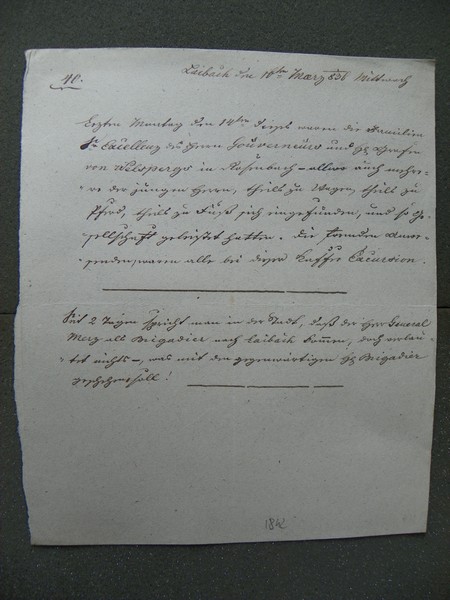 40.
Laibach den 16ten März 836 Mittwoch
Letzten Montag den 14ten dieses waren die Familien
Sr Excellenz des Herrn Gouverneurs und H: Grafen
von Welsperg in Rosenbach – allwo auch mehre-
re der jungen Herrn, theils zu Wagen, theils zu
Pferd, theils zu Fuß sich eingefunden, und so Ge-
sellschaft geleistet hatten. Die fremden
waren alle bei dieser Kaffee Excursion.
Seit 2 Tagen spricht man in der Stadt, daß der Herr General
Merz als Brigadier nach Laibach komme, doch verlau-
tet nichts –, was mit dem gegenwärtigen H: Brigadier
geschehen soll!
1842